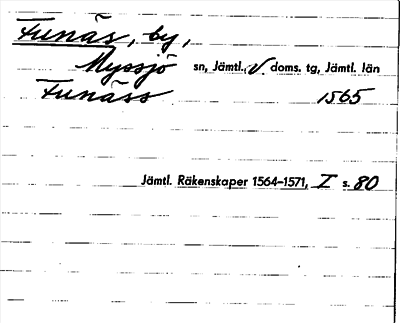 Funäs, by,
Myssjö sn, Jämtl., V. doms. tg, Jämtl. län
Funäss 1565
Jämtl. Räkenskaper 1564–1571, I s. 80